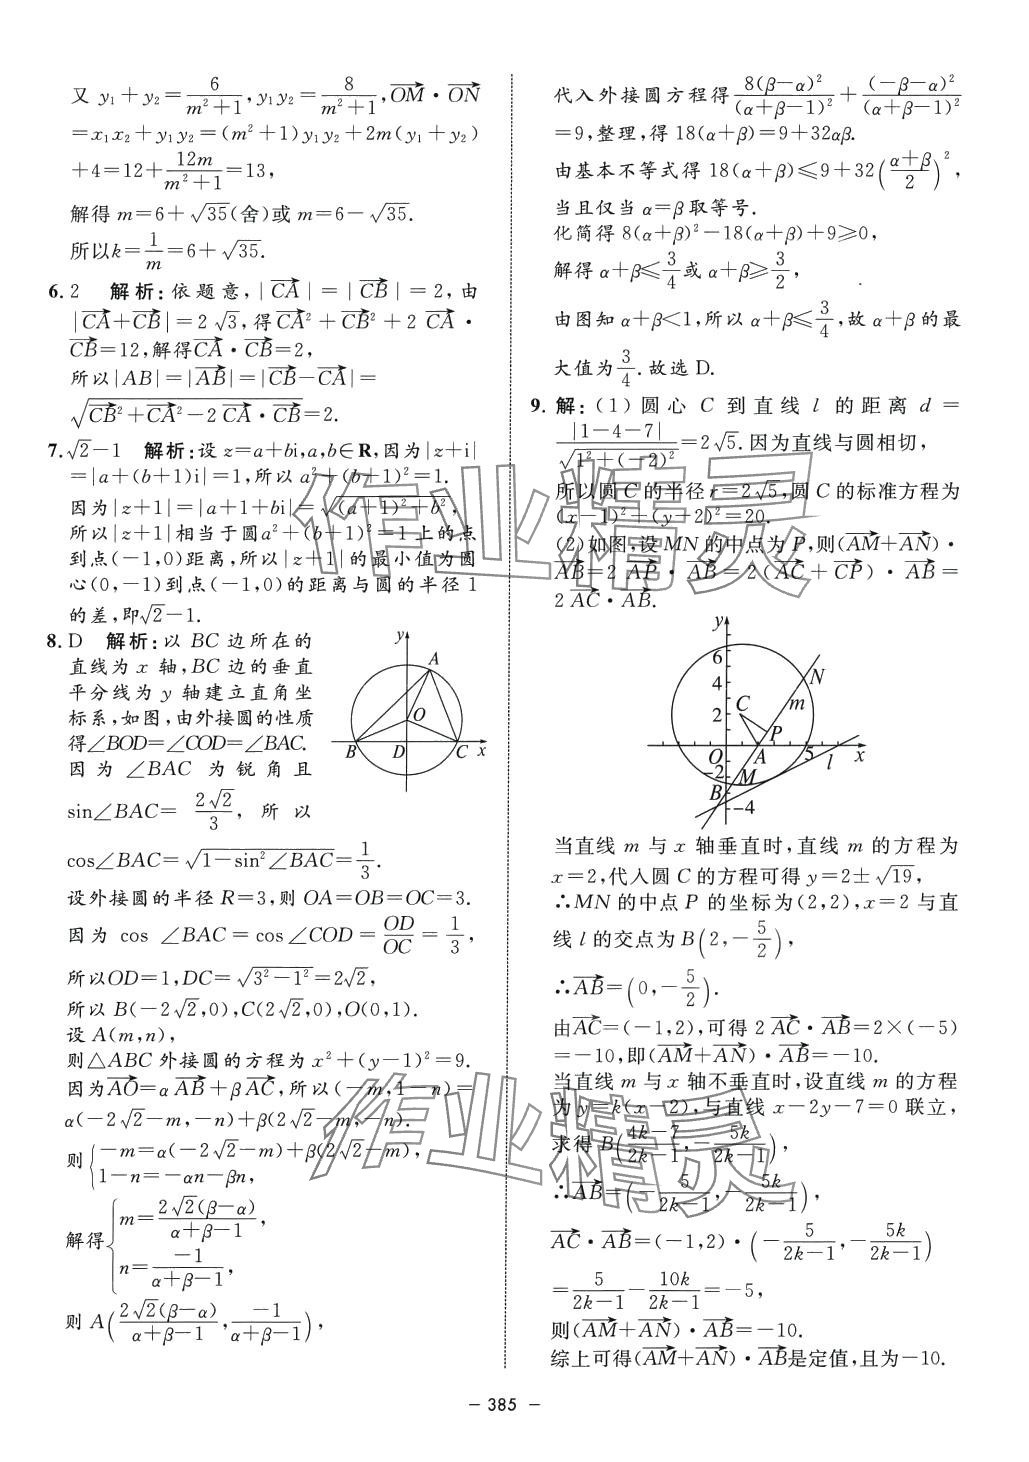 又 y₁+y₂=6/(m²+1),y₁y₂=8/(m²+1),OM→·ON→
=x₁x₂+y₁y₂=(m²+1)y₁y₂+2m(y₁+y₂)
+4=12+12m/(m²+1)=13,
解得 m=6+√35(舍)或 m=6-√35.
所以k=1/m=6+√35.
6. 2 解析:依题意,|CA→|=|CB→|=2,由
|CA→+CB→|=2√3,得CA→²+CB→²+2 CA→·
CB→=12,解得CA→·CB→=2,
所以|AB|=|AB→|=|CB→-CA→|=
√(CB→²+CA→²-2 CA→·CB→)=2.
7. √2-1 解析:设 z=a+bi,a,b∈R,因为|z+i|
=|a+(b+1)i|=1,所以 a²+(b+1)²=1.
因为|z+1|=|a+1+bi|=√((a+1)²+b²),
所以|z+1|相当于圆a²+(b+1)²=1上的点
到点(-1,0)距离,所以|z+1|的最小值为圆
心(0,-1)到点(-1,0)的距离与圆的半径1
的差,即√2-1.
8. D 解析:以 BC 边所在的
直线为 x 轴,BC 边的垂直
平分线为 y 轴建立直角坐
标系,如图,由外接圆的性质
得∠BOD=∠COD=∠BAC.
因为 ∠BAC 为锐角且
sin∠BAC= 2√2/3,所以
cos∠BAC=√(1-sin²∠BAC)=1/3.
y
A
O
B
D
C
x
设外接圆的半径 R=3,则 OA=OB=OC=3.
因为 cos ∠BAC=cos∠COD=OD/OC=1/3,
所以OD=1,DC=√(3²-1²)=2√2,
所以 B(-2√2,0),C(2√2,0),O(0,1).
设 A(m,n),
则△ABC外接圆的方程为 x²+(y-1)²=9.
因为AO→=α AB→+β AC→,所以(-m,1-n)=
α(-2√2-m,-n)+β(2√2-m,-n).
则{-m=α(-2√2-m)+β(2√2-m),
1-n=-αn-βn,
解得{m=2√2(β-α)/(α+β-1),
n=-1/(α+β-1),
则 A(2√2(β-α)/(α+β-1),-1/(α+β-1)),
代入外接圆方程得8(β-α)²/(α+β-1)²+(-β-α)²/(α+β-1)²
=9,整理,得 18(α+β)=9+32αβ.
由基本不等式得 18(α+β)≤9+32((α+β)/2)²,
当且仅当 α=β取等号.
化简得 8(α+β)²-18(α+β)+9≥0,
解得 α+β≤3/4或 α+β≥3/2,
由图知 α+β<1,所以 α+β≤3/4,故 α+β 的最
大值为3/4.故选 D.
9. 解:(1)圆心 C 到直线 l 的距离 d=
|1-4-7|/√(1²+(-2)²)=2√5.因为直线与圆相切,
所以圆 C 的半径 r=2√5,圆 C 的标准方程为
(x-1)²+(y-2)²=20.
(2)如图,设 MN 的中点为 P,则(AM→+AN→)·
AB→=2 AP→·AB→=2(AC→+CP→)·AB→=
2 AC→·AB→.
y
6
4
2
C
N
m
P
O
A
5
l
x
-2
M
B
-4
当直线 m 与 x 轴垂直时,直线 m 的方程为
x=2,代入圆 C 的方程可得 y=2±√19,
∴MN 的中点 P 的坐标为(2,2),x=2 与直
线 l 的交点为 B(2,-5/2),
∴AB→=(0,-5/2).
由AC→=(-1,2),可得 2 AC→·AB→=2×(-5)
=-10,即(AM→+AN→)·AB→=-10.
当直线 m 与 x 轴不垂直时,设直线 m 的方程
为 y=k(x-2),与直线 x-2y-7=0 联立,
求得 B((4k-7)/(2k-1),-5k/(2k-1)),
∴AB→=(-5/(2k-1),-5k/(2k-1)),
AC→·AB→=(-1,2)·(-5/(2k-1),-5k/(2k-1))
=5/(2k-1)-10k/(2k-1)=-5,
则(AM→+AN→)·AB→=-10.
综上可得(AM→+AN→)·AB→是定值,且为-10.
作业精灵
作业精灵
- 385 -